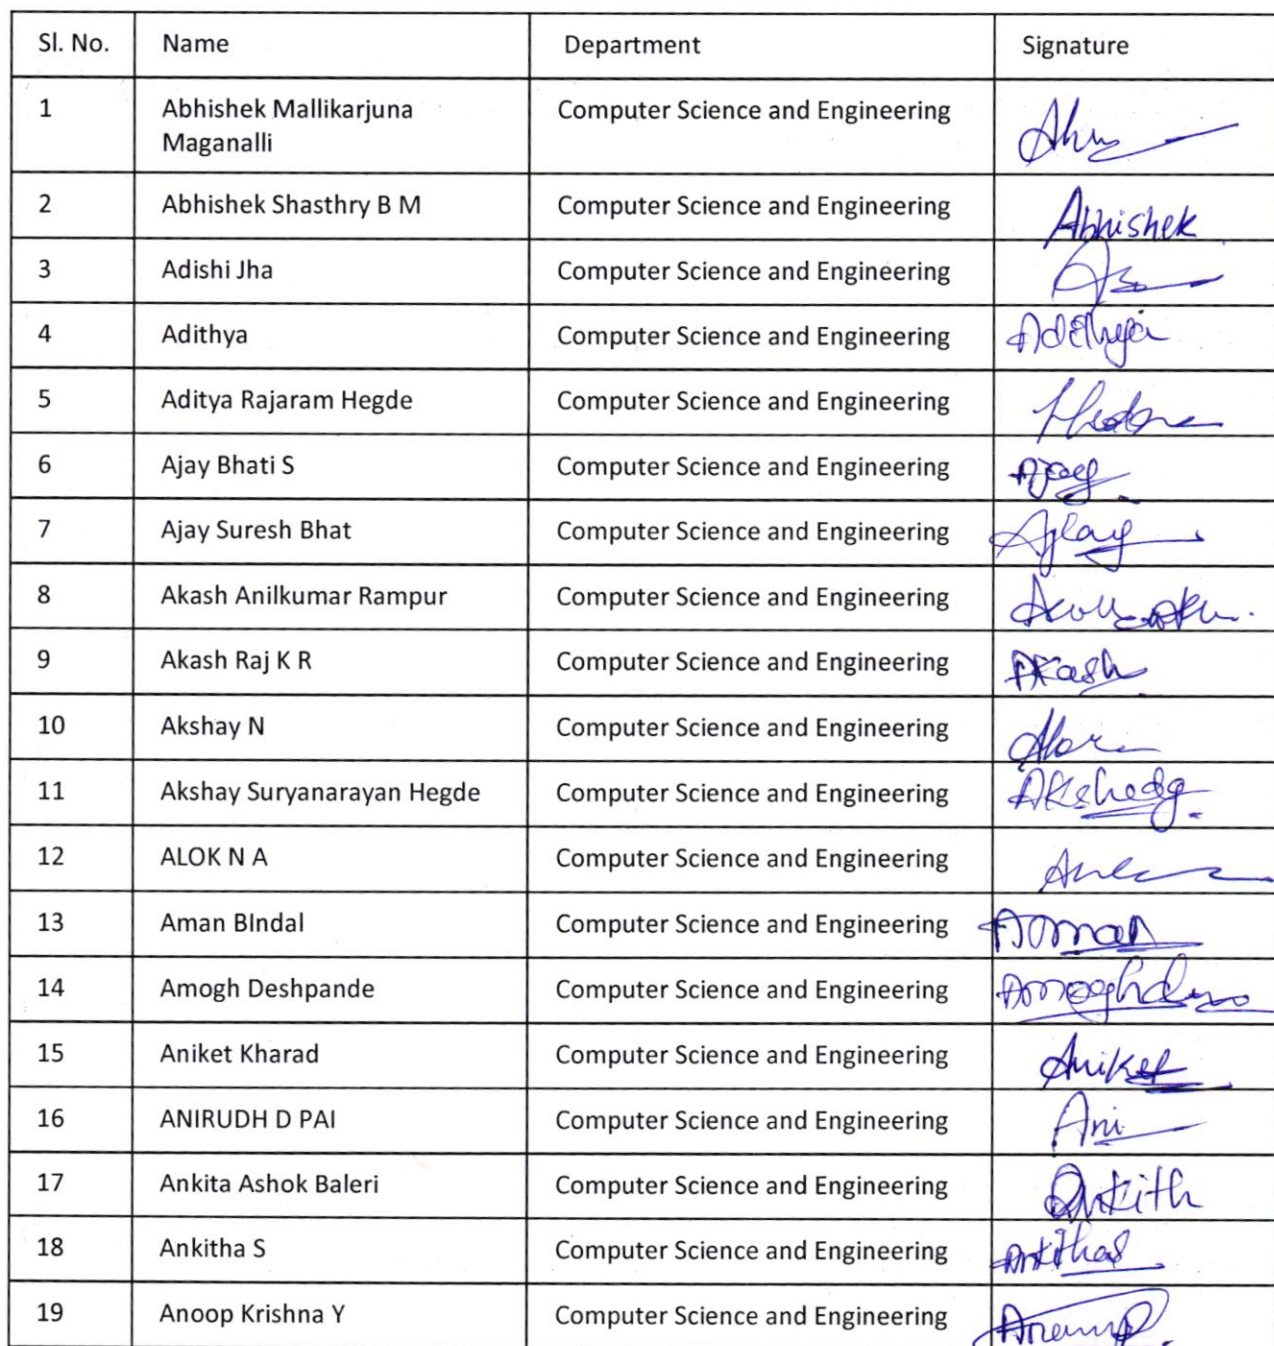 Sl. No. Name Department Signature
1 Abhishek Mallikarjuna Computer Science and Engineering
Maganalli
2 Abhishek Shasthry B M Computer Science and Engineering Abhishek
3 Adishi Jha Computer Science and Engineering
4 Adithya Computer Science and Engineering Adithya
5 Aditya Rajaram Hegde Computer Science and Engineering
6 Ajay Bhati S Computer Science and Engineering Ajay
7 Ajay Suresh Bhat Computer Science and Engineering
8 Akash Anilkumar Rampur Computer Science and Engineering
9 Akash Raj K R Computer Science and Engineering Akash
10 Akshay N Computer Science and Engineering
11 Akshay Suryanarayan Hegde Computer Science and Engineering
12 ALOK N A Computer Science and Engineering
13 Aman BIndal Computer Science and Engineering Aman
14 Amogh Deshpande Computer Science and Engineering
15 Aniket Kharad Computer Science and Engineering Aniket
16 ANIRUDH D PAI Computer Science and Engineering Ani
17 Ankita Ashok Baleri Computer Science and Engineering Ankith
18 Ankitha S Computer Science and Engineering AnkithaS
19 Anoop Krishna Y Computer Science and Engineering